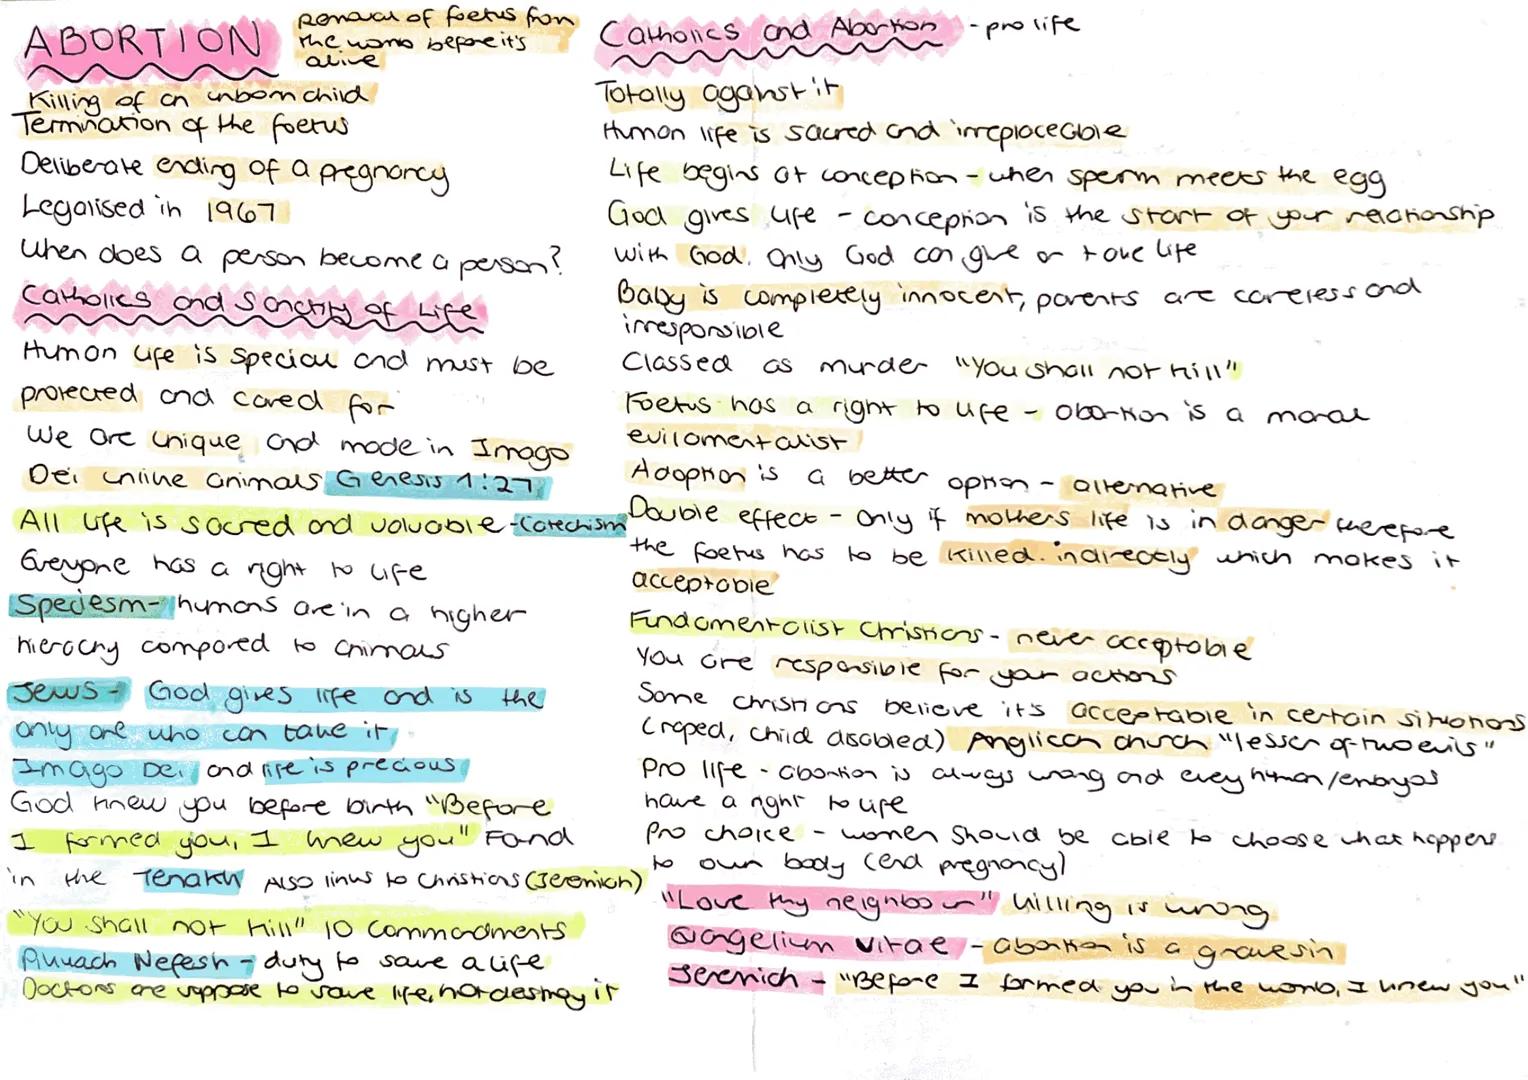 ABORTION
removal of foetus from
the womb before it's
alive
Killing of an unborn child
Termination of the foetus
Deliberate ending of a pregnancy
Legalised in 1967
When does a person become a person?
Catholics and Sanctity of Life
Human life is special and must be
protected and cared for
We are unique and made in Imago
Dei unlike animals Genesis 1:27
All life is sacred and valuable - Catechism
Everyone has a right to life
Speciesm - humans are in a higher
hierachy compared to animals
Jews - God gives life and is the
only one who can take it
Imago Dei and life is precious
God knew you before birth "Before
I formed you, I knew you" Found
in the Tenakh Also links to Christians (Jeremiah)
"You shall not kill" 10 Commandments
Pikuach Nefesh - duty to save a life
Doctors are suppose to save life, not destroy it
Catholics and Abortion - pro life
Totally against it
Human life is sacred and irreplaceable
Life begins at conception - when sperm meets the egg
God gives life - conception is the start of your relationship
with God. Only God can give or take life
Baby is completely innocent, parents are careless and
irresponsible
Classed as murder "You shall not kill"
Foetus has a right to life - abortion is a moral
evil
Adoption is a better option - alternative
Double effect - Only if mothers life is in danger therefore
the foetus has to be killed indirectly which makes it
acceptable
Fundamentalist Christians - never acceptable
You are responsible for your actions
Some christians believe it's acceptable in certain situations
(raped, child disabled) Anglican church "lesser of two evils"
Pro life - abortion is always wrong and every human/embryos
have a right to life
Pro choice - women should be able to choose what happens
to own body (end pregnancy)
"Love thy neighbour" killing is wrong
Evangelium Vitae - abortion is a grave sin
Jeremiah - "Before I formed you in the womb, I knew you"